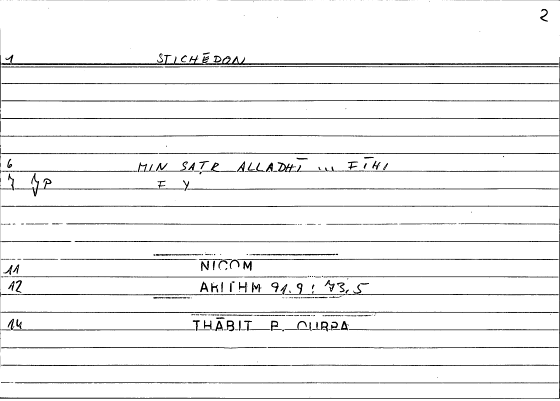 2
1 STICHĒDON
6 MIN SAṬR ALLADHĪ ... FĪHI
F Y
11 NICOM
12 ARITHM 91.9 : 73,5
14 THĀBIT B. QURRA